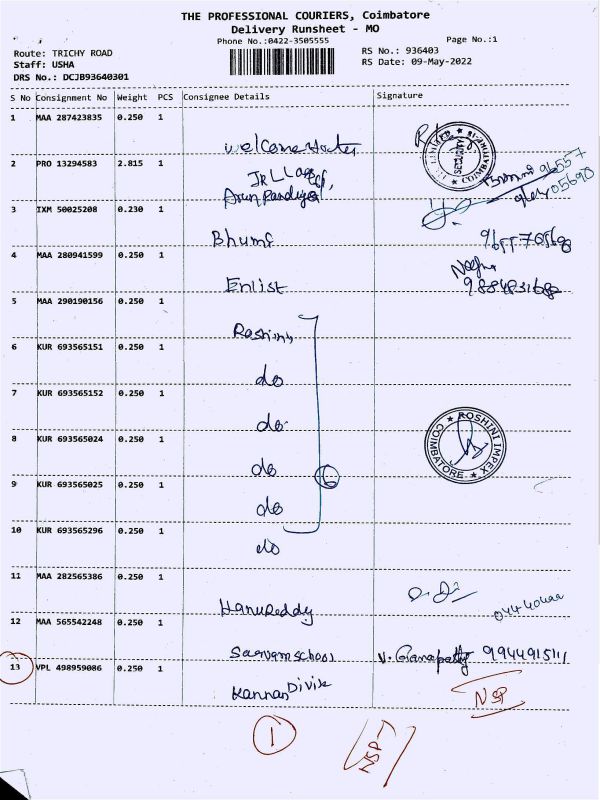 THE PROFESSIONAL COURIERS, Coimbatore
Delivery Runsheet - MO
Phone No.:0422-3505555
Page No.:1
Route: TRICHY ROAD
RS No.: 936403
Staff: USHA
RS Date: 09-May-2022
DRS No.: DCJB93640301
S No Consignment No Weight PCS Consignee Details Signature
1 MAA 287423835 0.250 1
2 PRO 13294583 2.815 1
Arun Pandiyan
3 IXM 50025208 0.230 1
Bhumi
4 MAA 280941599 0.250 1
Enlist
5 MAA 290190156 0.250 1
Roshini
6 KUR 693565151 0.250 1
do
7 KUR 693565152 0.250 1
do
8 KUR 693565024 0.250 1
ROSHINI IMPEX
COIMBATORE
do
9 KUR 693565025 0.250 1
6
do
10 KUR 693565296 0.250 1
do
11 MAA 282565386 0.250 1
HanuReddy
12 MAA 565542248 0.250 1
Saaram school V. Ganapathy 9944915111
13 VPL 498959086 0.250 1
Kannan Divik
NSP
1
NSP-1